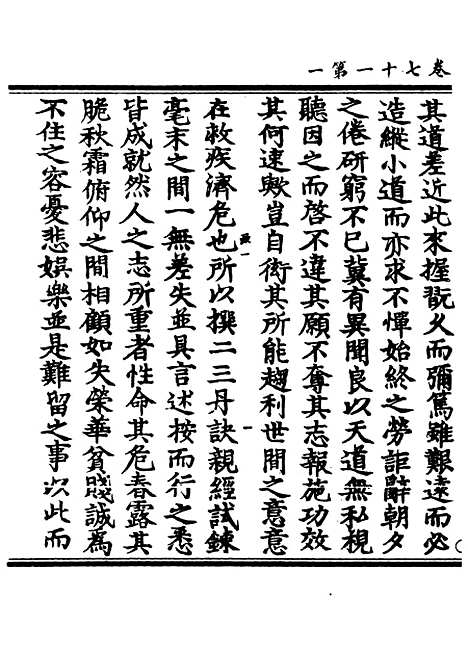 卷七十一第一
其道差近此來握翫久而彌篤雖艱遠而必
造縱小道而亦求不憚始終之勞詎辭朝夕
之倦研窮不已冀有異聞良以天道無私視
聽因之而啓不違其願不奪其志報施功效
其何速歟豈自衒其所能趨利世間之意意
在救疾濟危也所以撰二三丹訣親經試鍊
毫末之間一無差失並具言述按而行之悉
皆成就然人之志所重者性命其危春露其
脆秋霜俯仰之間相顧如失榮華貧賤誠爲
不住之容憂悲娛樂並是難留之事以此而